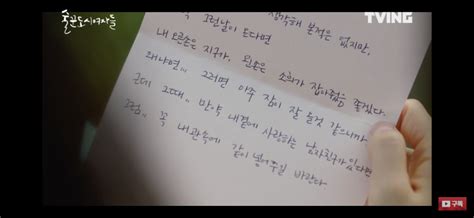 술꾼도시여자들
TVING
생각해 본적은 없지만,
혹 그런날이 온다면
내 오른손은 지구가, 왼손은 소희가 잡아줬음 좋겠다.
왜냐면.. 그러면 아주 잠이 잘 올것 같으니까
근데 그때.. 만약 내곁에 사랑하는 남자친구가 있다면
그놈.. 꼭 내 관속에 같이 넣어주길 바란다
구독